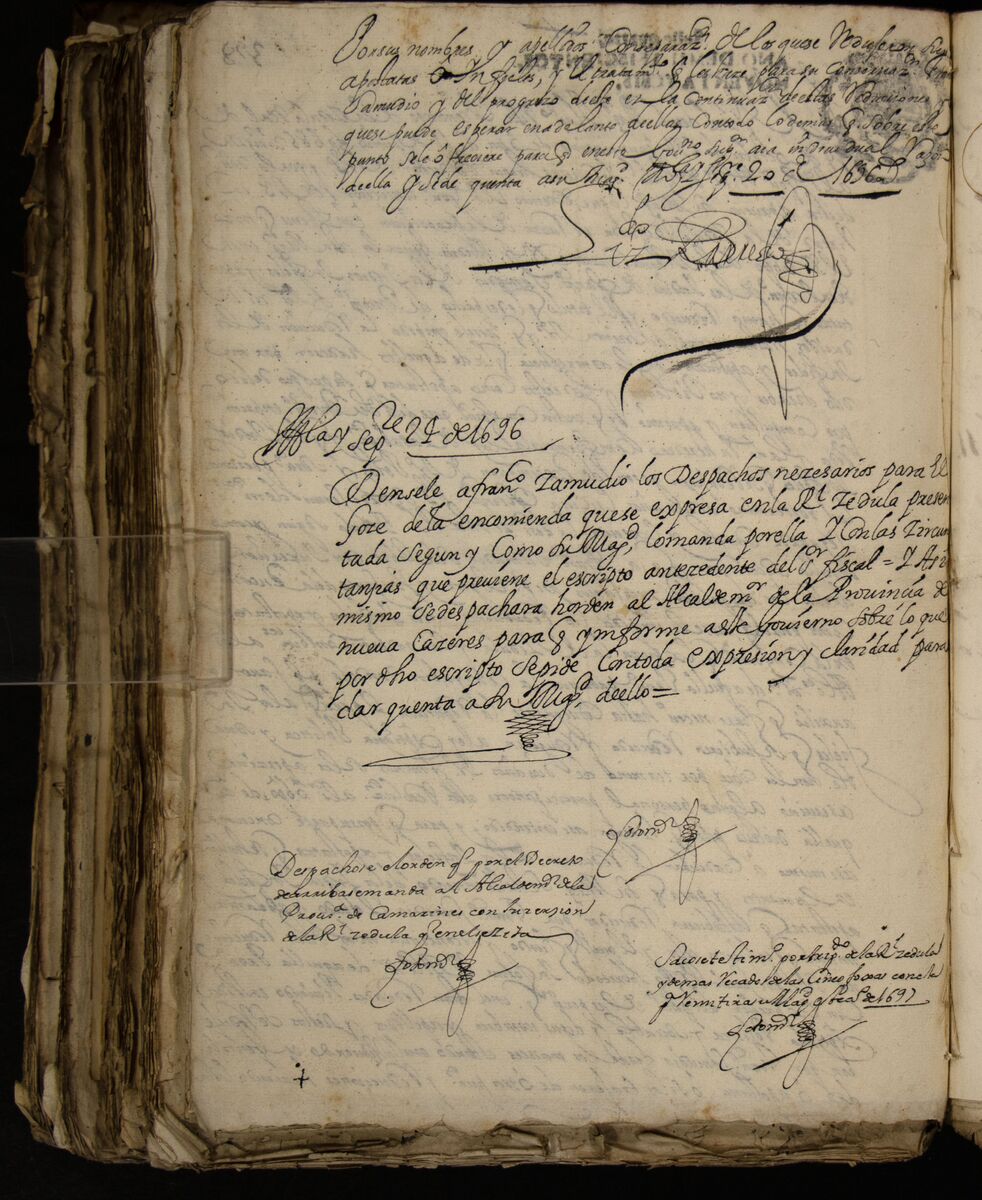 Por sus nombres, y apellidos Con separaz.n de los que se Reduseron
apostatas o Infieles, y el tratam.to q les haze para su Conservaz.n
Samudio y del progreso decho en la Continuaz. de las Reduciones y
que se puede esperar en adelante de ellas Con todo lo demas q Sobre este
punto se le ofreciere para q en este Gov.no Sup.r aia individual
de ella y se de quenta a su Mag.d 20 de 1696
Mla y Sep.re 24 de 1696
Densele a fran.co Zamudio los Despachos nezesarios para el
Goze de la encomienda que se expresa en la R.l zedula presen
tada segun y Como su Mag.d lo manda por ella Y Con las Zircun
tanzias que previene el escripto antezedente del S.r fiscal = Y Asi
mismo se despachara horden al Alcalde m.or de la Provinzia de
nueva Cazeres para q ynforme a este Govierno sobre lo que
por dho escripto se pide Con toda expresion y claridad para
dar quenta a su Mag.d de ello =
Despachose el orden q por el Decreto
de arriba se manda al Alcalde m.r de la
Prov.a de Camarines con Inzersion
de la R.l zedula q en el se zita
Sacose testim.o por trip.do de la R.l zedula
y demas Recados de las Cinco foxas con esta
p.a Remitir a su Mag.d de 1697